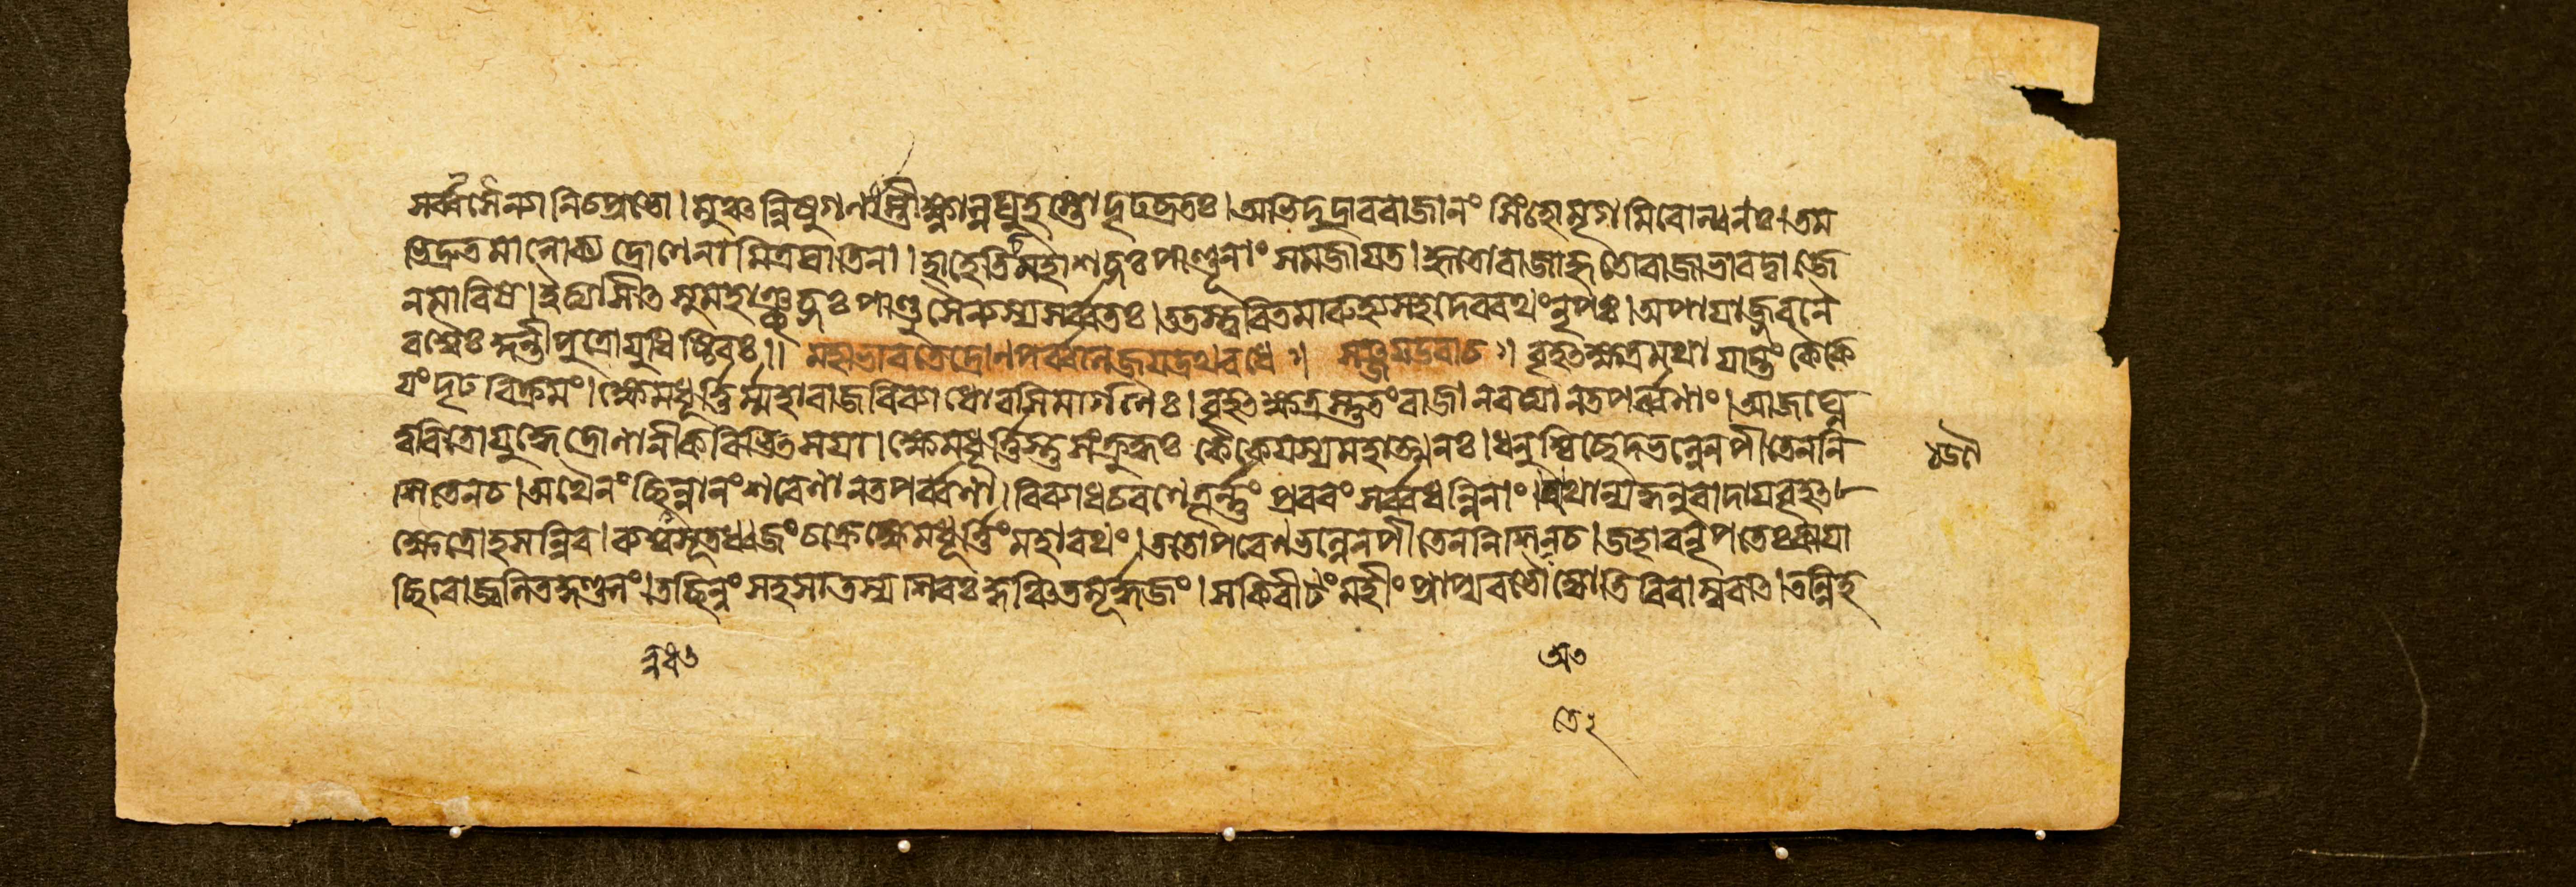 সর্ব্বসৈন্যানি চাপ্যতো। মুঞ্চন্নিষুগণাংস্তীক্ষ্ণান্লঘুহস্তো দৃঢব্রতঃ। অভিদুদ্রাব রাজানং সিংহো মৃগমিবোল্বনঃ। তম
ভিদ্রুতমালোক্য দ্রোণেনামিত্রঘাতিনা। হাহেতি সুমহাশব্দঃ পাণ্ডূনাং সমজায়ত। হৃতো রাজা হৃতো রাজা ভারদ্বাজে
ন মারিষ। ইত্যাসীৎ সুমহাঞ্ছব্দঃ পাণ্ডুসৈন্যস্য সর্ব্বতঃ। ততস্ত্বরিতমারুহ্য সহদেবরথং নৃপঃ। অপায়াজ্জবনৈ
রশ্বৈঃ কুন্তীপুত্রো যুধিষ্ঠিরঃ॥ মহাভারতে দ্রোণপর্ব্বণি জয়দ্রথবধে॥ সঞ্জয় উবাচ॥ বৃহৎক্ষত্রমথায়ান্তং কৈকে
য়ং দৃঢবিক্রমং। ক্ষেমধূর্ত্তির্ম্মহারাজ বিব্যাধোরসি মার্গণৈঃ। বৃহৎক্ষত্রস্তু তং রাজা নবত্যা নতপর্ব্বণাং। আজঘ্নে
ত্বরিতো যুদ্ধে দ্রোণানীকবিভিৎসয়া। ক্ষেমধূর্ত্তিস্তু সংক্রুদ্ধঃ কৈকেয়স্য মহাত্মনঃ। ধনুশ্চিচ্ছেদ ভল্লেন পীতেন নি
শিতেন চ। অথৈনং ছিন্নানং শরেণানতপর্ব্বণা। বিব্যাধ চ রণে তূর্ন্নং প্রবরং সর্ব্বধন্বিনাং। অথান্যদ্ধনুরাদায় বৃহৎ
ক্ষত্রো হসন্নিব। ব্যশ্বসূতধ্বজং চক্রে ক্ষেমধূর্ত্তিং মহারথং। ততোপরেণ ভল্লেন পীতেন নিশিতেন চ। জহার নৃপতেঃ কায়া
চ্ছিরো জ্বলিতকুণ্ডলং। তচ্ছিন্নং সহসা তস্য শিরঃ কুঞ্চিতমূর্দ্ধজং। সকিরীটং মহীং প্রাপ্য বভৌ জ্যোতিরিবাম্বরাৎ। তন্নিহ